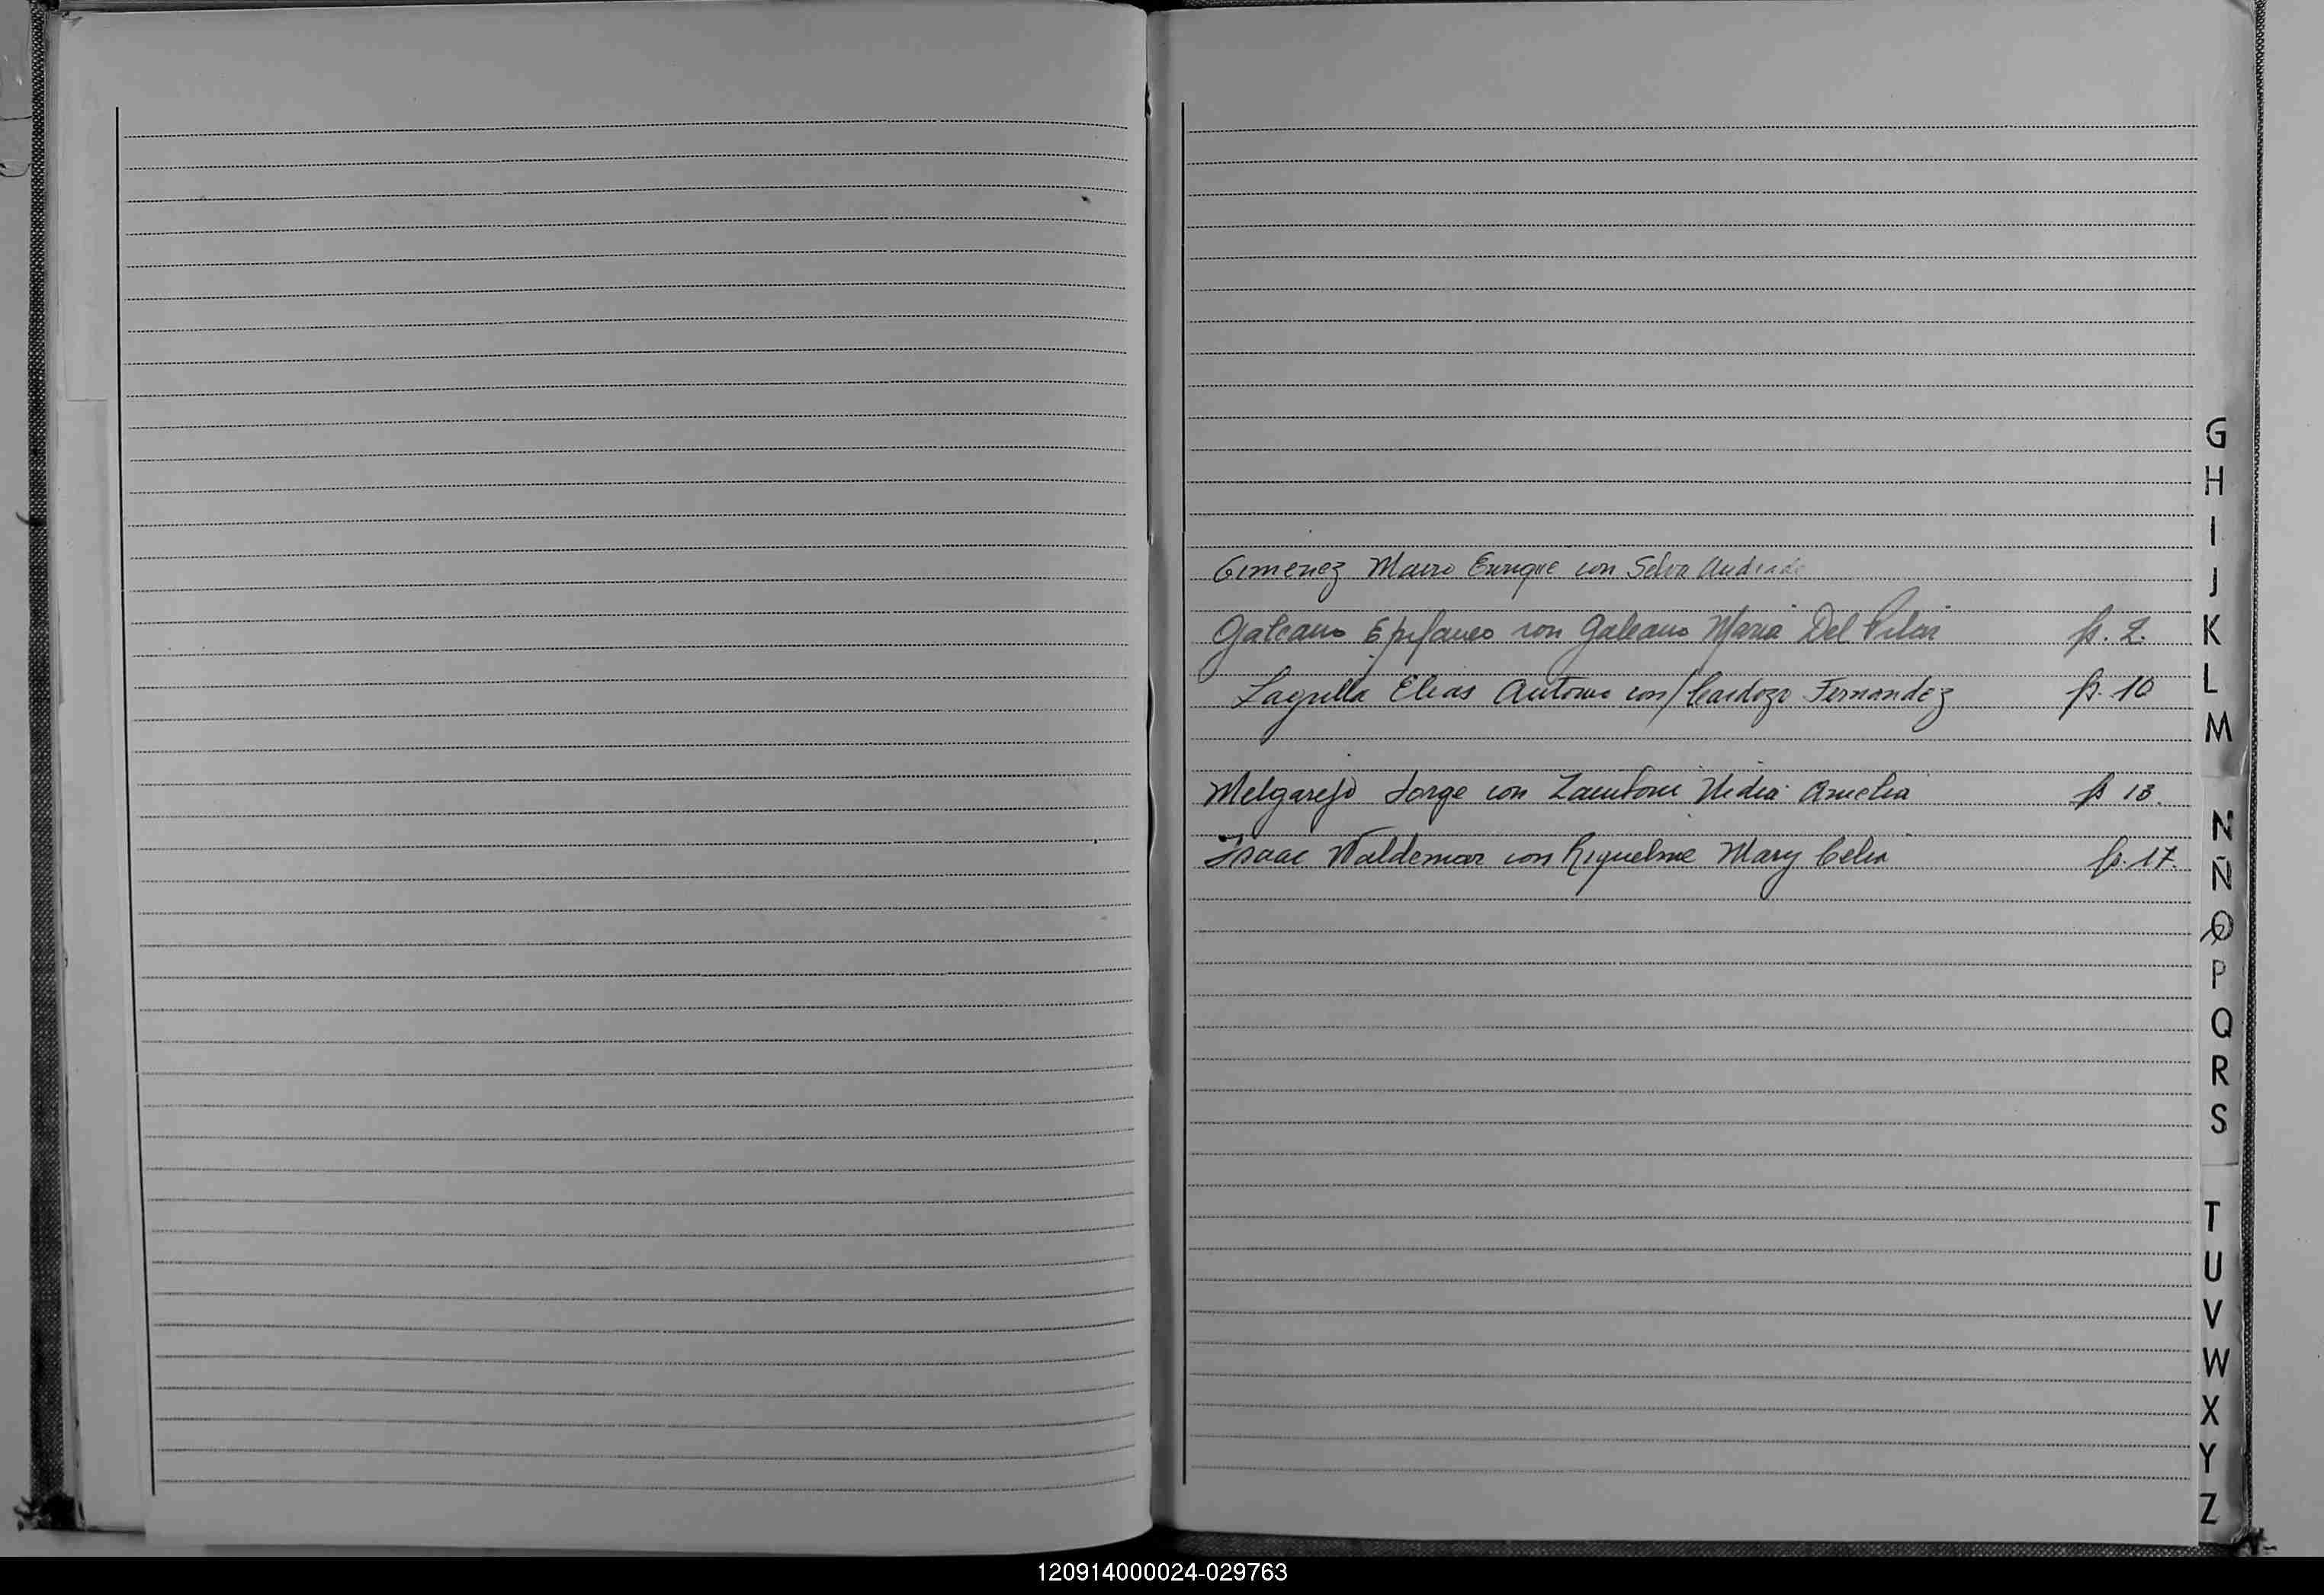 Gimenez Mauro Enrique con Selva Andrade
Galeano Epifaneo con Galeano Maria Del Pilar fs. 2.
Elias Antonio con/ Cardozo Fernandez fs. 10
Melgarejo Jorge con Zamboni Nidia Amelia fs 13.
Isaac Waldemar con Riquelme Mary Celia fs. 17.
G
H
I
J
K
L
M
N
Ñ
O
P
Q
R
S
T
U
V
W
X
Y
Z
120914000024-029763